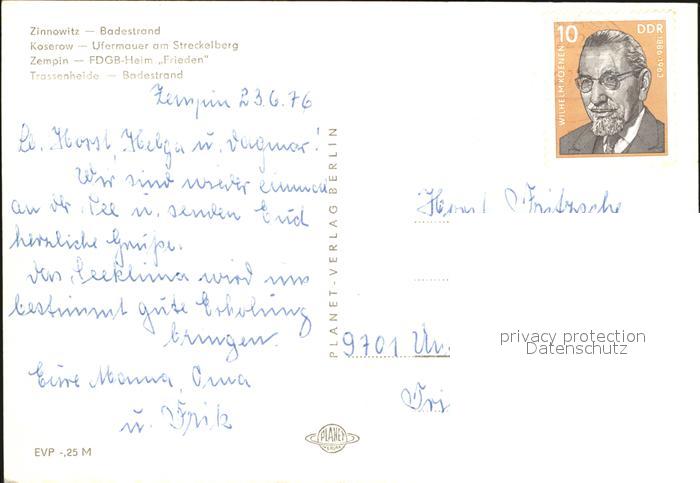 Zinnowitz — Badestrand
Koserow — Ufermauer am Streckelberg
Zempin — FDGB-Heim „Frieden"
Trassenheide — Badestrand
Zempin 23.6.76
Lb. Horst, Helga u. Dagmar!
Wir sind wieder einmal
an der See u. senden Euch
herzliche Grüße.
Das Seeklima wird uns
bestimmt gute Erholung
bringen.
Eure Mama, Oma
u. Erik
EVP -,25 M
PLANET-VERLAG BERLIN
PLANET
VERLAG
10 DDR
WILHELM KOENEN
1886-1963
Horst Fritzsche
9701 Un.
privacy protection
Datenschutz